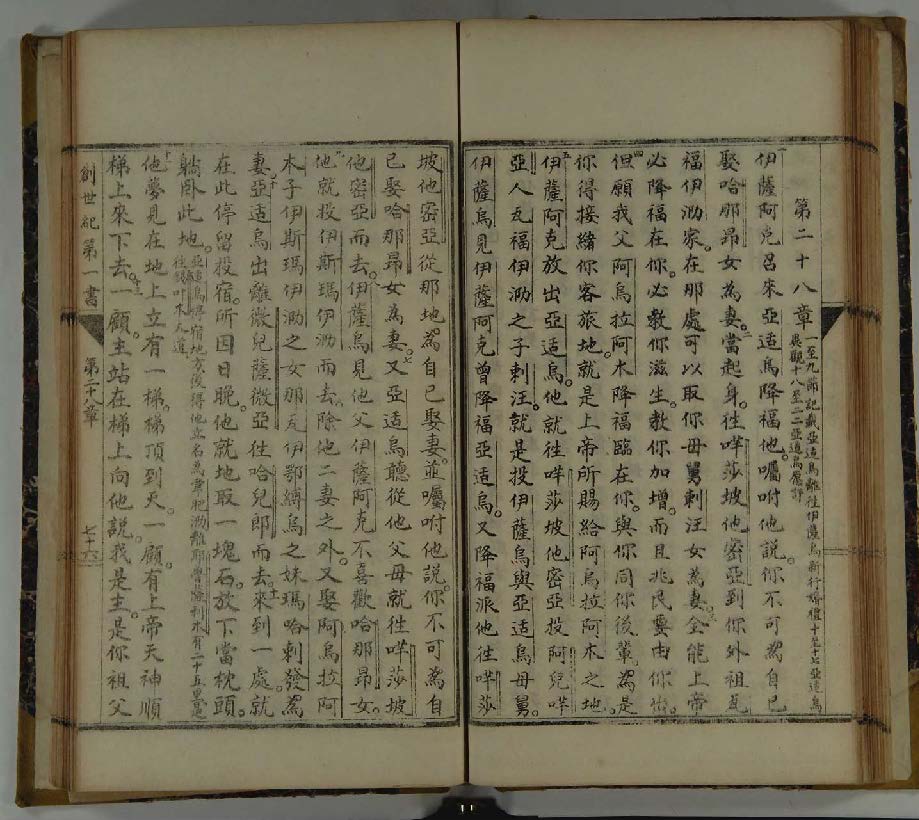 第二十八章
伊薩阿克召來亞适烏降福他囑咐他說你不可為自己
娶哈那昂女為妻當起身徃咩莎坡他密亞到你外祖瓦
福伊泐家在那處可以取你母舅剌汪女為妻全能上帝
必降福在你必教你滋生教你加增而且兆民要由你出
但願我父阿烏拉阿木降福臨在你與你同你後輩為是
你得接緒你客旅地就是上帝所賜給阿烏拉阿木之地
伊薩阿克放出亞适烏他就徃咩莎坡他密亞投阿兒咩
亞人瓦福伊泐之子剌汪就是投伊薩烏與亞适烏母舅
伊薩烏見伊薩阿克曾降福亞适烏又降福派他徃咩莎
坡他密亞從那地為自己娶妻並囑咐他說你不可為自
己娶哈那昂女為妻又亞适烏聽從他父母就徃咩莎坡
他密亞而去伊薩烏見他父伊薩阿克不喜歡哈那昂女
他就投伊斯瑪伊泐而去除他二妻之外又娶阿烏拉阿
木子伊斯瑪伊泐之女那瓦伊鄂縛烏之妹瑪哈剌發為
妻亞适烏出離微兒薩微亞徃哈兒郎而去來到一處就
在此停留投宿所因日晚他就地取一塊石放下當枕頭
躺臥此地
他夢見在地上立有一梯梯頂到天一顧有上帝天神順
梯上來下去一顧主站在梯上向他說我是主是你祖父
創世紀第一書
第二十八章
七十六